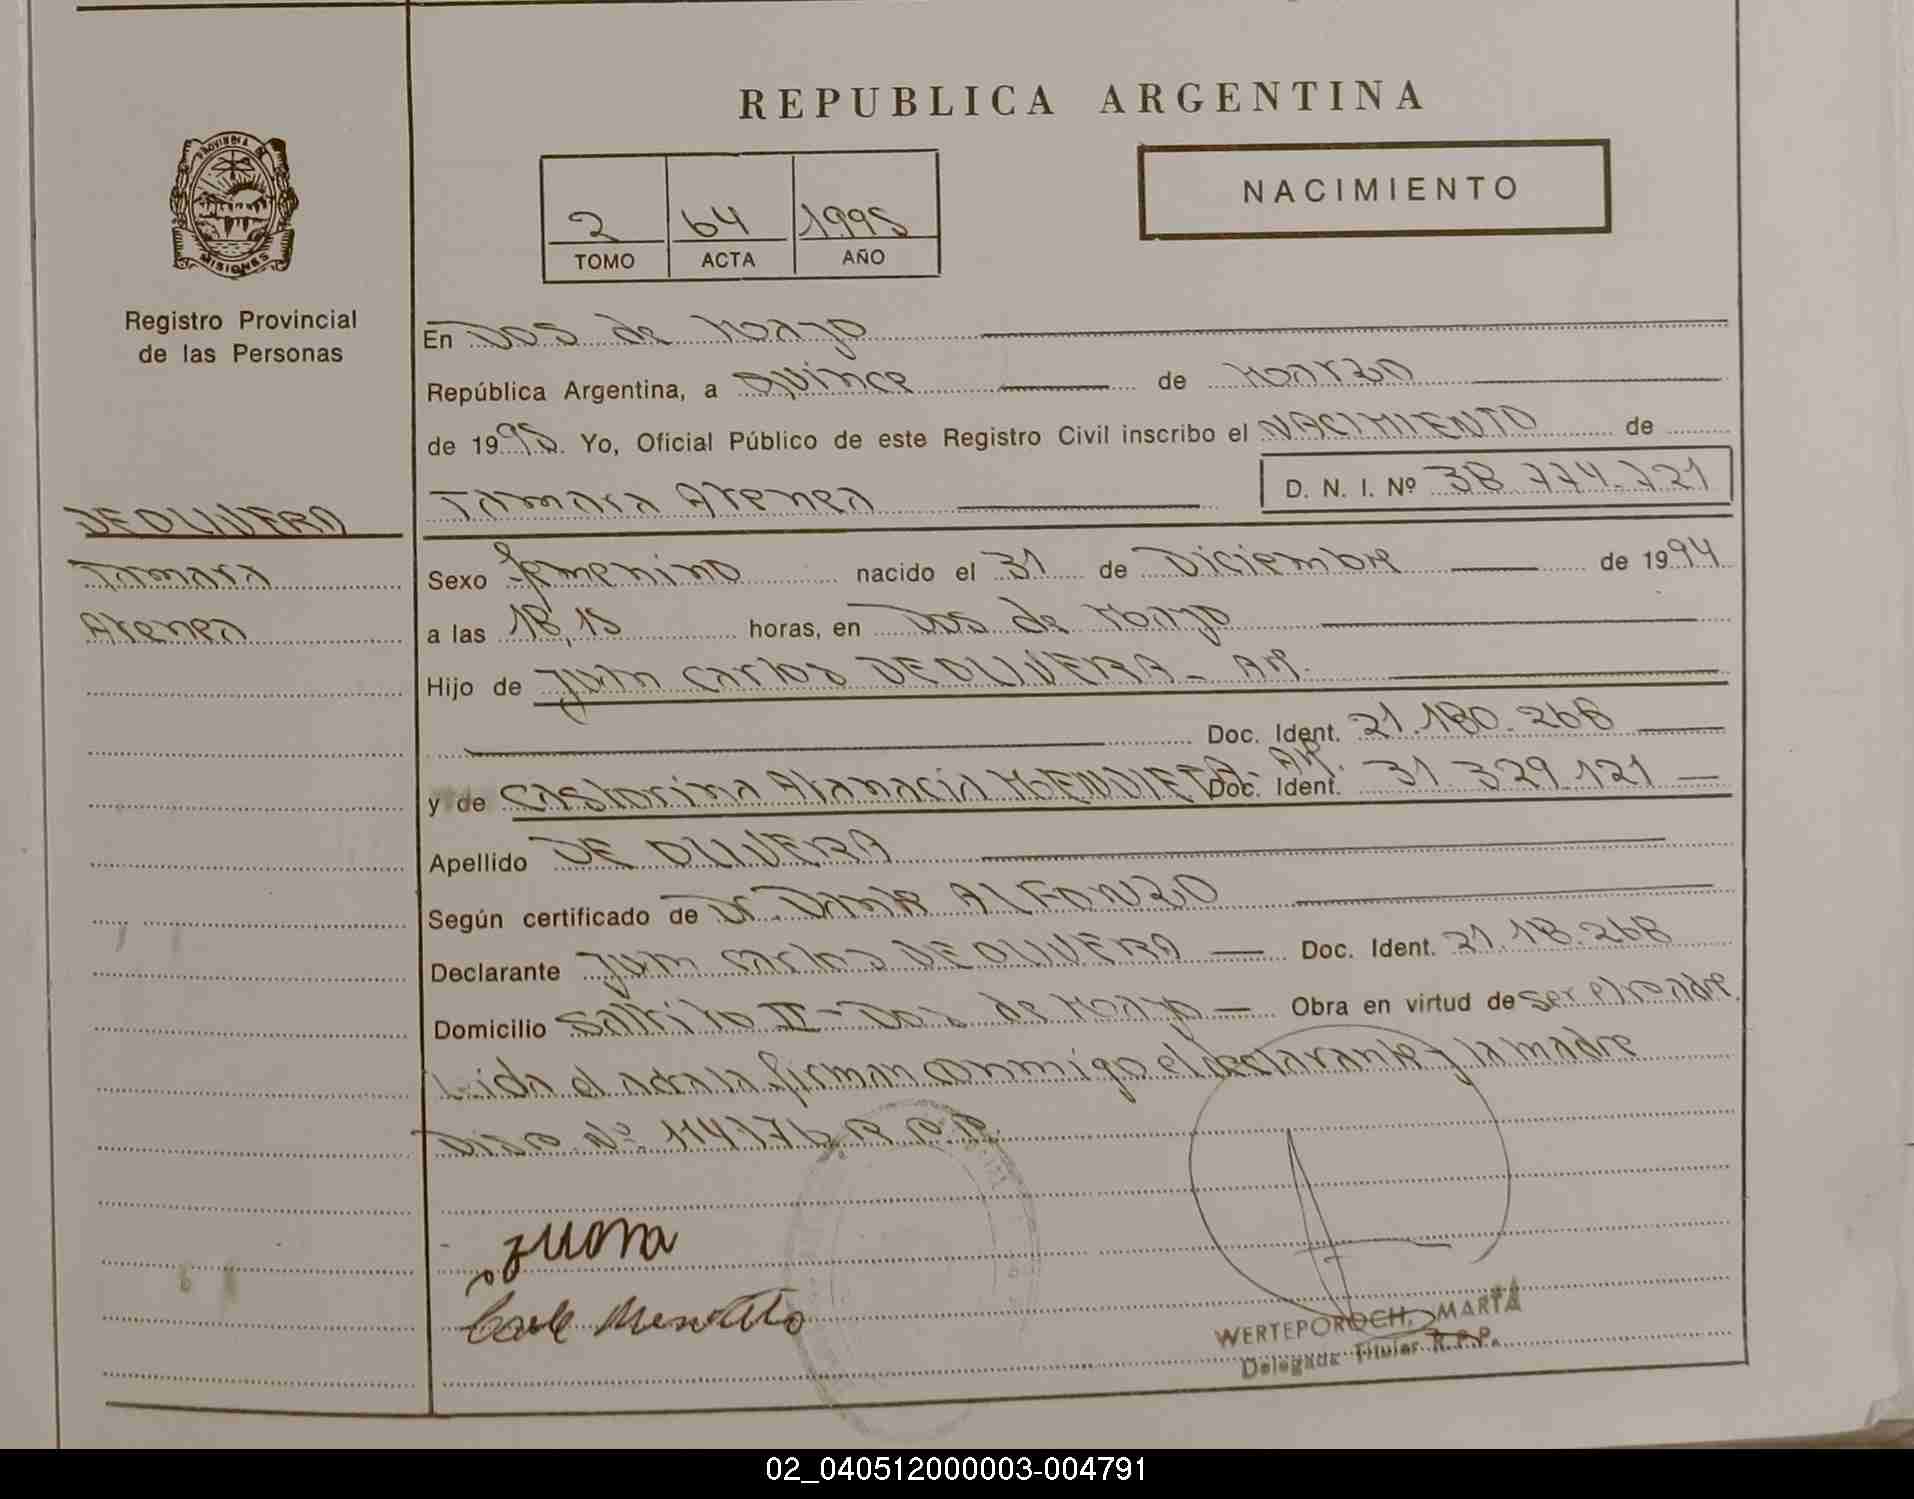 REPUBLICA ARGENTINA
PROVINCIA DE
MISIONES
NACIMIENTO
2 64 1995
TOMO ACTA AÑO
Registro Provincial
de las Personas
En Dos de Mayo
República Argentina, a Quince de Marzo
de 1995. Yo, Oficial Público de este Registro Civil inscribo el NACIMIENTO de
Tamara Atenea D. N. I. Nº 38.774.721
DEOLIVERA
Tamara
Atenea
Sexo femenino nacido el 31 de Diciembre de 1994
a las 18,15 horas, en Dos de Mayo
Hijo de Juan Carlos DEOLIVERA - AR.
Doc. Ident. 21.180.268
y de Castorina Atanacia MOENDIETA - AR. Doc. Ident. 31.329.121
Apellido DE OLIVERA
Según certificado de Dr. ALFONZO
Declarante Juan Carlos DEOLIVERA Doc. Ident. 21.18.268
Domicilio Saltito II - Dos de Mayo Obra en virtud de ser el padre
Leida el acta la firman conmigo el declarante y la madre
Disp. Nº 114176 R.P.P.
WERTEPOROCH, MARTA
Delegada Titular R.P.P.
02_040512000003-004791